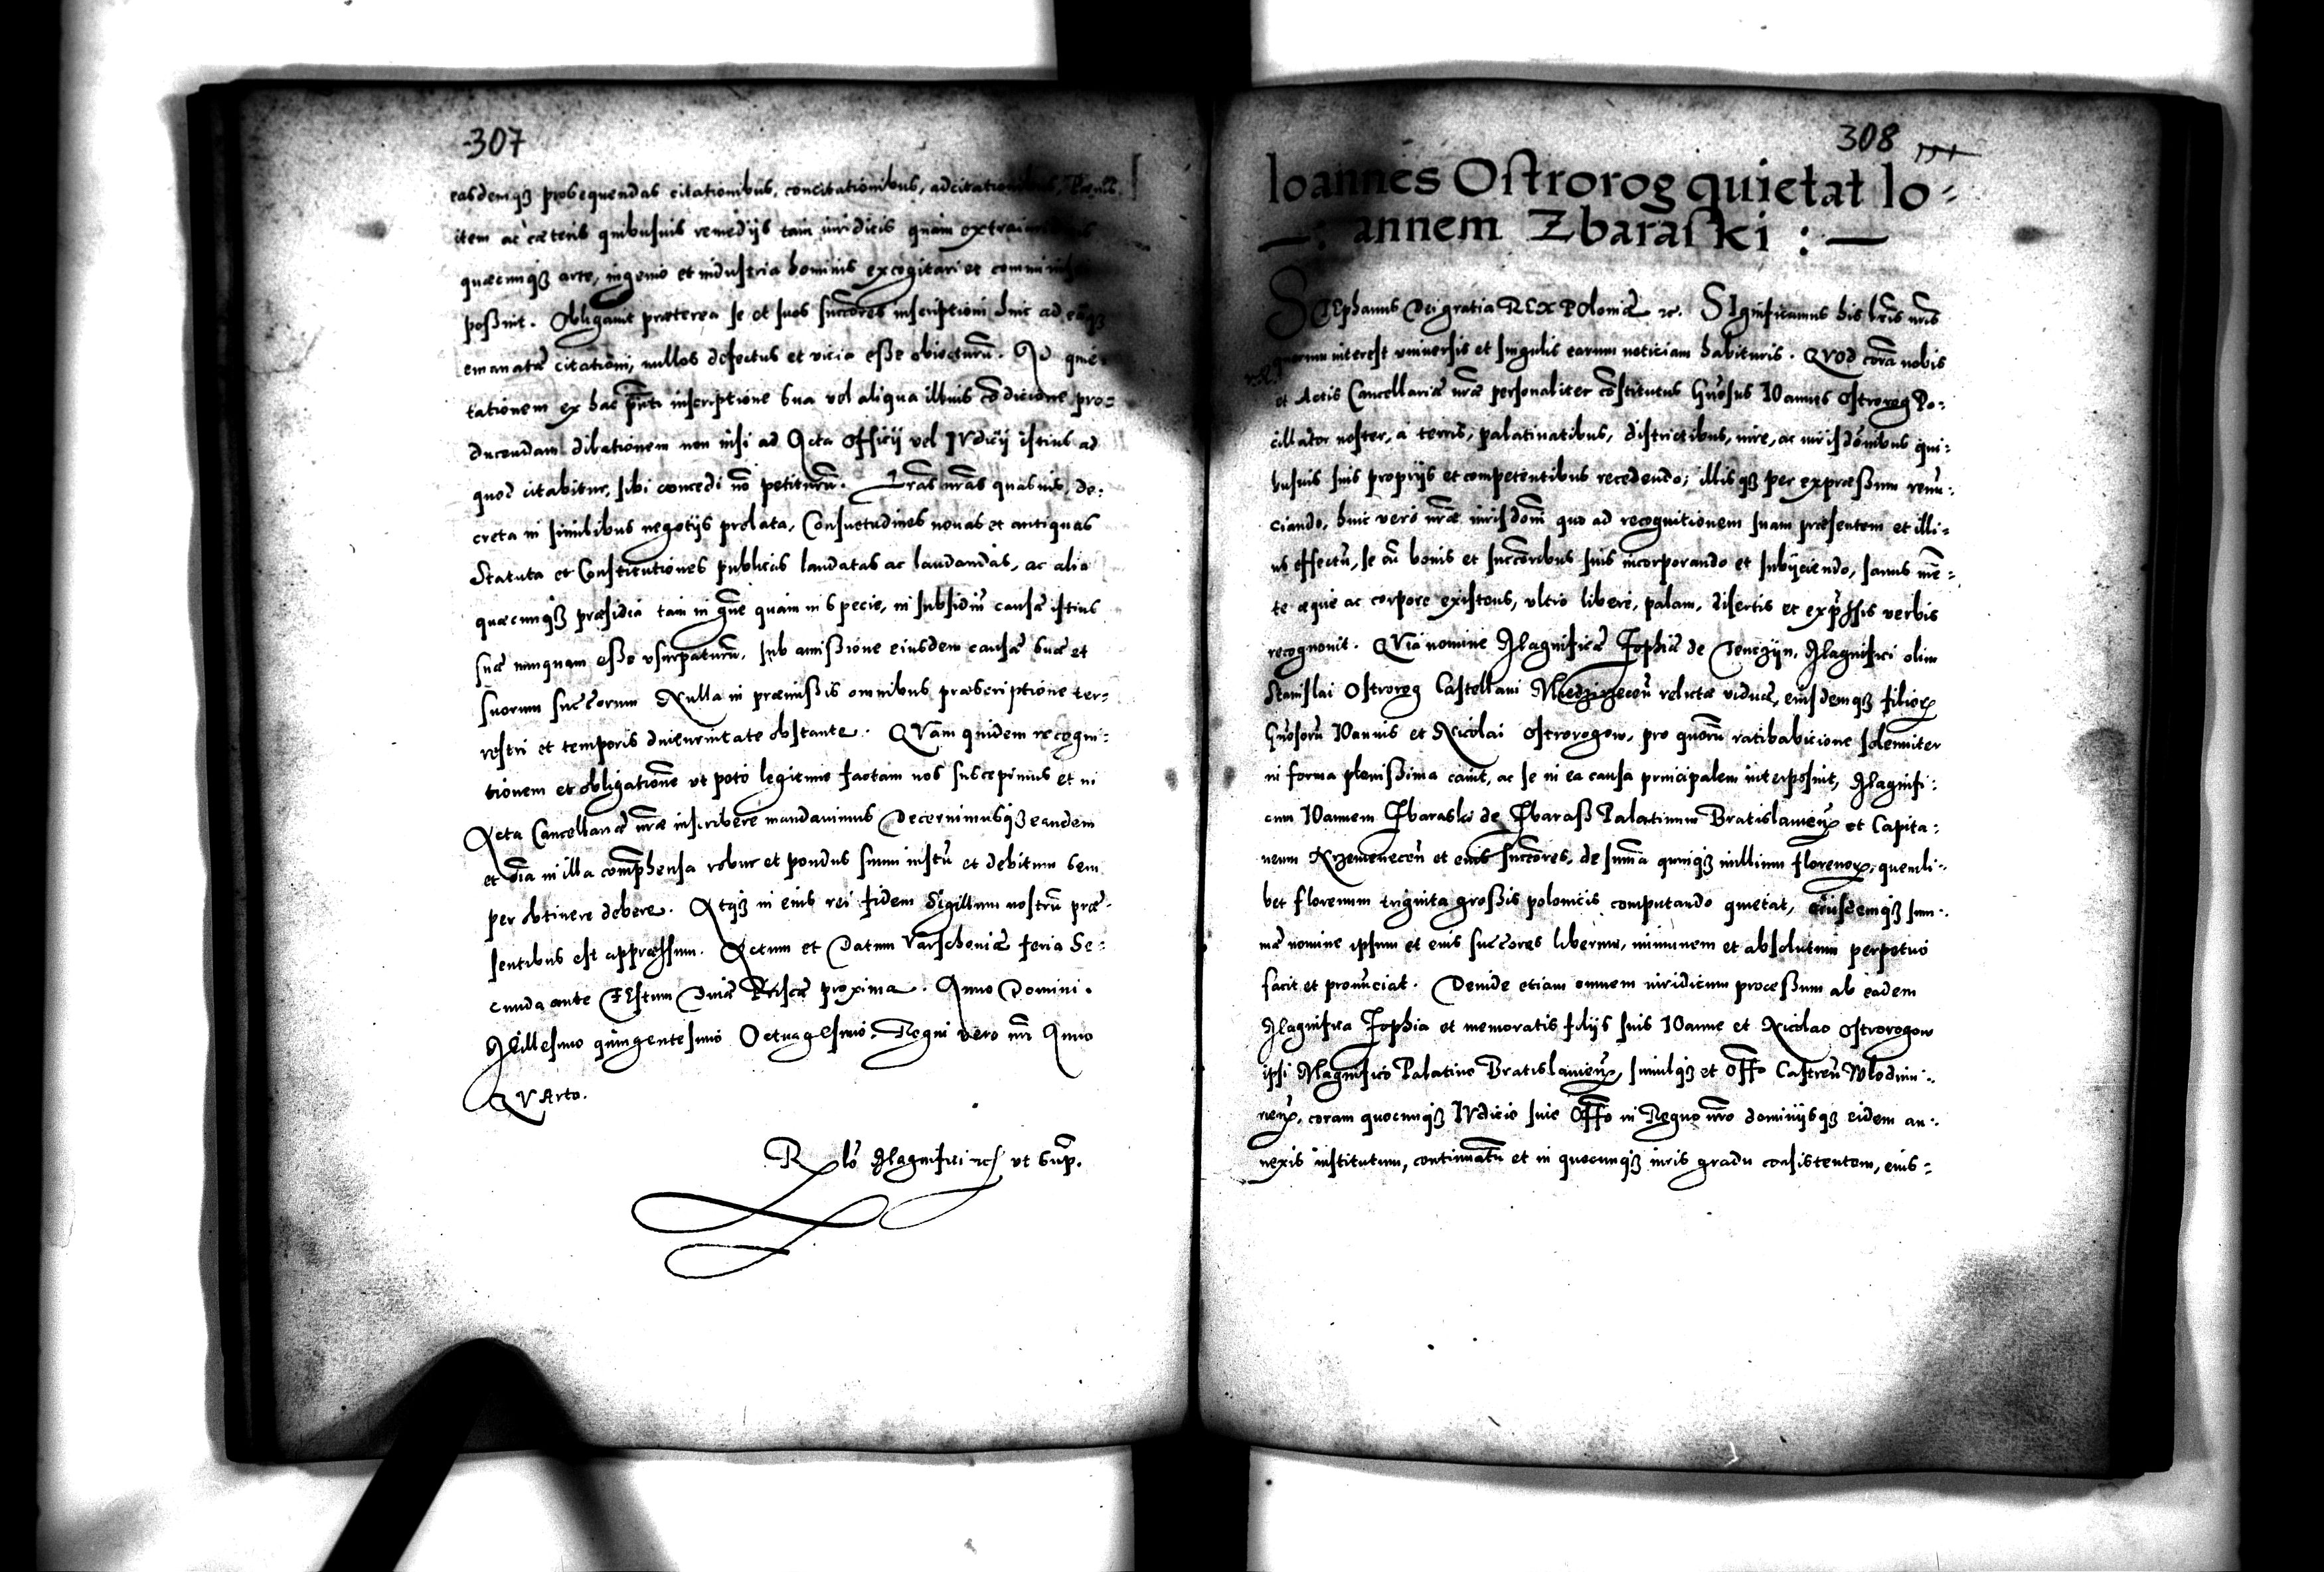 307
easdemq3 prosequendas citationibus, concitationibus, adcitationibus,
item ac cæteris quibusuis remedijs tam iuridicis quam
quæcunq3 arte, ingenio et industria hominis excogitari et
poßint. Obligauit præterea se et suos succores inscriptioni huic ad
emanatæ citationi, nullos defectus et vicia eße obiecturū. Ad quie-
tationem ex hac pn̄ti inscriptione sua vel aliqua illius cōdicione pro-
ducendam dilationem non nisi ad Acta Officij vel IVdicij istius ad
quod citabitur, sibi concedi nō petiturū. Lrās nrās quasuis, de-
creta in similibus negotijs prolata, Consuetudines nouas et antiquas
Statuta et Constitutiones publicas laudatas ac laudandas, ac alia
quæcunq3 præsidia tam in gn̄e quam in specie, in subsidiū causæ istius
suæ nunquam eße vsurpaturū, sub amißione eiusdem causæ suæ et
suorum succorum Nulla in præmißis omnibus præscriptione ter-
restri et temporis diuturnitate obstante. QVam quidem recogni-
tionem et obligationē vt pote legitime factam nos suscepimus et in
Acta Cancellariæ nræ inscribere mandauimus Decernimusq3 eandem
et oīa in illa comp̄hensa robur et pondus suum iustū et debitum sem
per obtinere debere. Atq3 in eius rei fidem Sigillum nostrū præ-
sentibus est appressum. Actum et Datum Varschouiæ feria Se-
cunda ante FEstum Diuæ Priscæ proxima. Anno Domini.
Millesimo quingentesimo Octuagesimo. Regni vero nri Anno
QVArto.
Rlō Magnifici etc ut sup.
308
Ioannes Ostrorog quietat Io-
—: annem Zbaraski : —
STEphanus Dei gratia REX POloniæ etc. SIgnificamus his lris nris
quorum interest vniuersis et singulis earum noticiam habituris. QVOd corā nobis
et Actis Cancellariæ nræ personaliter cōstitutus Gn̄osus IOannes Ostrorog Po-
cillator noster, a terris, palatinatibus, districtibus, iure, ac iurisdōnibus qui-
busuis suis proprijs et competentibus recedendo, illisq3 per expræßum renū-
ciando, huic vero nræ iurisdōni quo ad recognitionem suam præsentem et illi-
us effectū, se cū bonis et succoribus suis incorporando et subijciendo, sanus mē-
te æque ac corpore existens, vltro libere, palam, disertis et exp̄ssis verbis
recognouit. QVia nomine Magnificæ Zophiæ de Tenczijn, Magnifici olim
Stanislai Ostrorog Castellani Miedzirzecen̄ relictæ viduæ, eiusdemq3 filior
Gn̄osorū IOannis et Nicolai Ostrorogow, pro quorū ratihabicione solenniter
in forma plenißima cauit, ac se in ea causa principalem interposuit, Magnifi-
cum IOannem Zbaraski de Zbaraß Palatinum Bratislauien et Capita-
neum Krzemenecen̄ et eius succores, de sum̄a quinq3 millium florenor, quemli-
bet florenum triginta großis polonicis computando quietat, eiusdemq3 sum-
mæ nomine ipsum et eius succores liberum, immunem et absolutum perpetuo
facit et pronūciat. Deinde etiam omnem iuridicum proceßum ab eadem
Magnifica Zophia et memoratis filijs suis IOanne et Nicolao Ostrorogow
ipsi Magnifico Palatino Bratislauien, simulq3 et Offo Castren̄ Wlodimi-
rien, coram quocunq3 IVdicio siue Offo in Regno nro dominijsq3 eidem an-
nexis institutum, continuatū et in quocunq3 iuris gradu consistentem, eius-